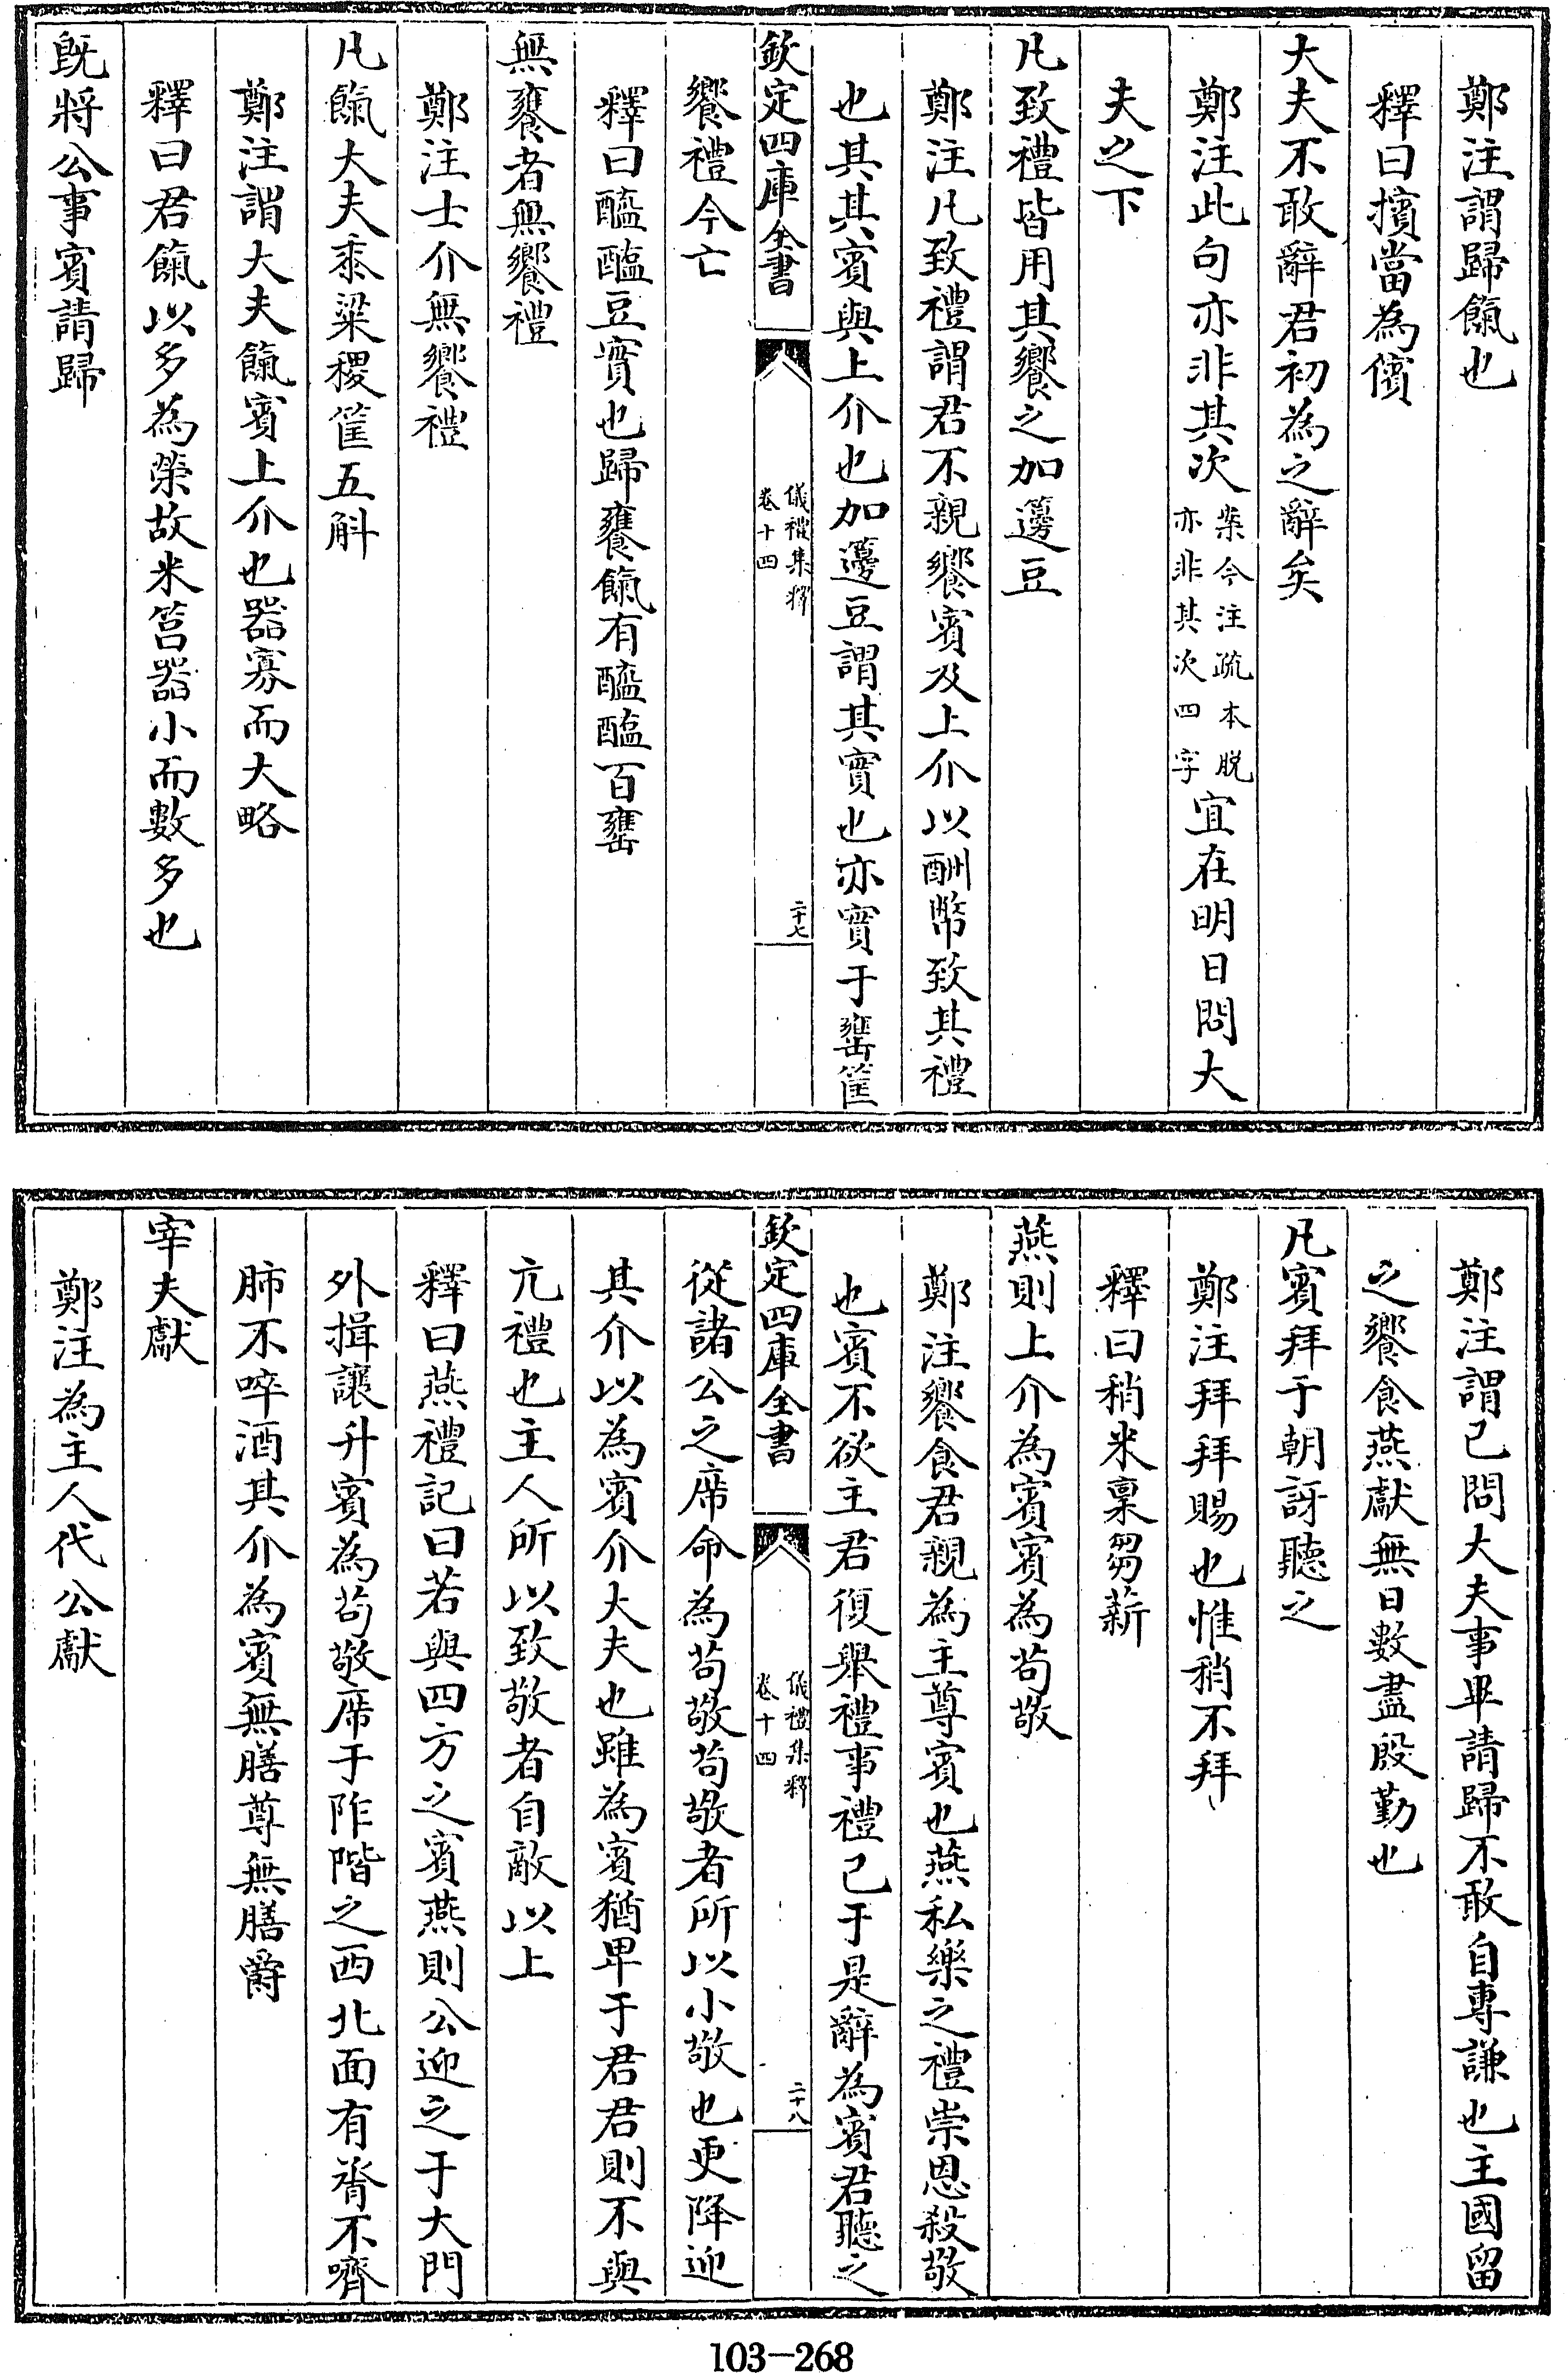 鄭注謂歸餼也
釋曰擯當為儐
大夫不敢辭君初為之辭矣
鄭注此句亦非其次案今注疏本脱亦非其次四字宜在明日問大
夫之下
凡致禮皆用其饗之加籩豆
鄭注凡致禮謂君不親饗賓及上介以酬幣致其禮
也其其賓與上介也加籩豆謂其實也亦實于罋筐
欽定四庫全書 儀禮集釋 卷十四 二十七
饗禮今亡
釋曰醯醢豆實也歸饔餼有醯醢百罋
無饔者無饗禮
鄭注士介無饗禮
凡餼大夫黍粱稷筐五斛
鄭注謂大夫餼賓上介也器寡而大略
釋曰君餼以多為榮故米筥器小而數多也
既將公事賓請歸
鄭注謂已問大夫事畢請歸不敢自專謙也主國留
之饗食燕獻無日數盡殷勤也
凡賓拜于朝訝聽之
鄭注拜拜賜也惟稍不拜
釋曰稍米稟芻薪
燕則上介為賓賓為苟敬
鄭注饗食君親為主尊賓也燕私樂之禮崇恩殺敬
也賓不欲主君復舉禮事禮己于是辭為賓君聽之
欽定四庫全書 儀禮集釋 卷十四 二十八
從諸公之席命為苟敬苟敬者所以小敬也更降迎
其介以為賓介大夫也雖為賓猶卑于君君則不與
亢禮也主人所以致敬者自敵以上
釋曰燕禮記曰若與四方之賓燕則公迎之于大門
外揖讓升賓為苟敬席于阼階之西北面有脀不嚌
肺不啐酒其介為賓無膳尊無膳爵
宰夫獻
鄭注為主人代公獻
103-268